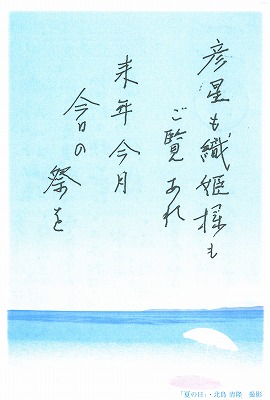 彦星も織姫様も
ご覧あれ
来年今月
今日の祭を
「夏の日」・北島 清隆　撮影